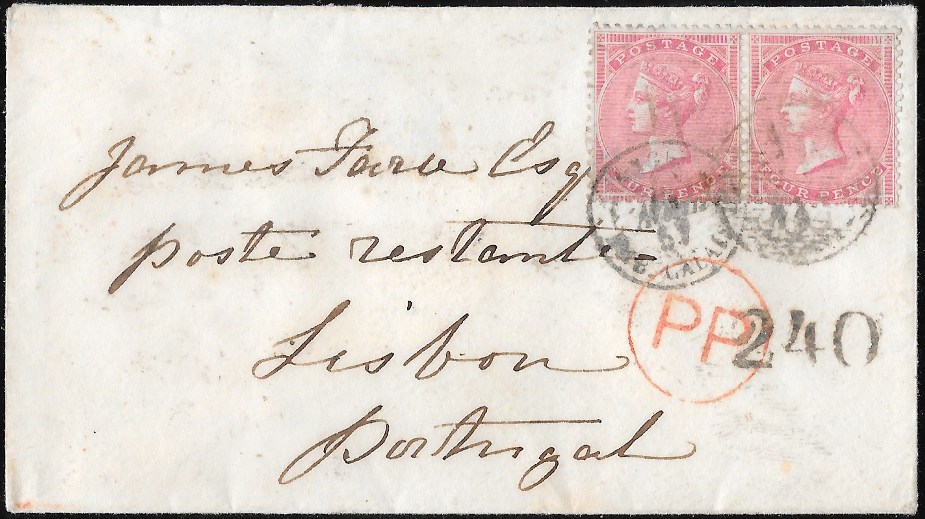 POSTAGE POSTAGE
FOUR PENCE
James Esq
poste restante
Lisbon
Portugal
PP
240